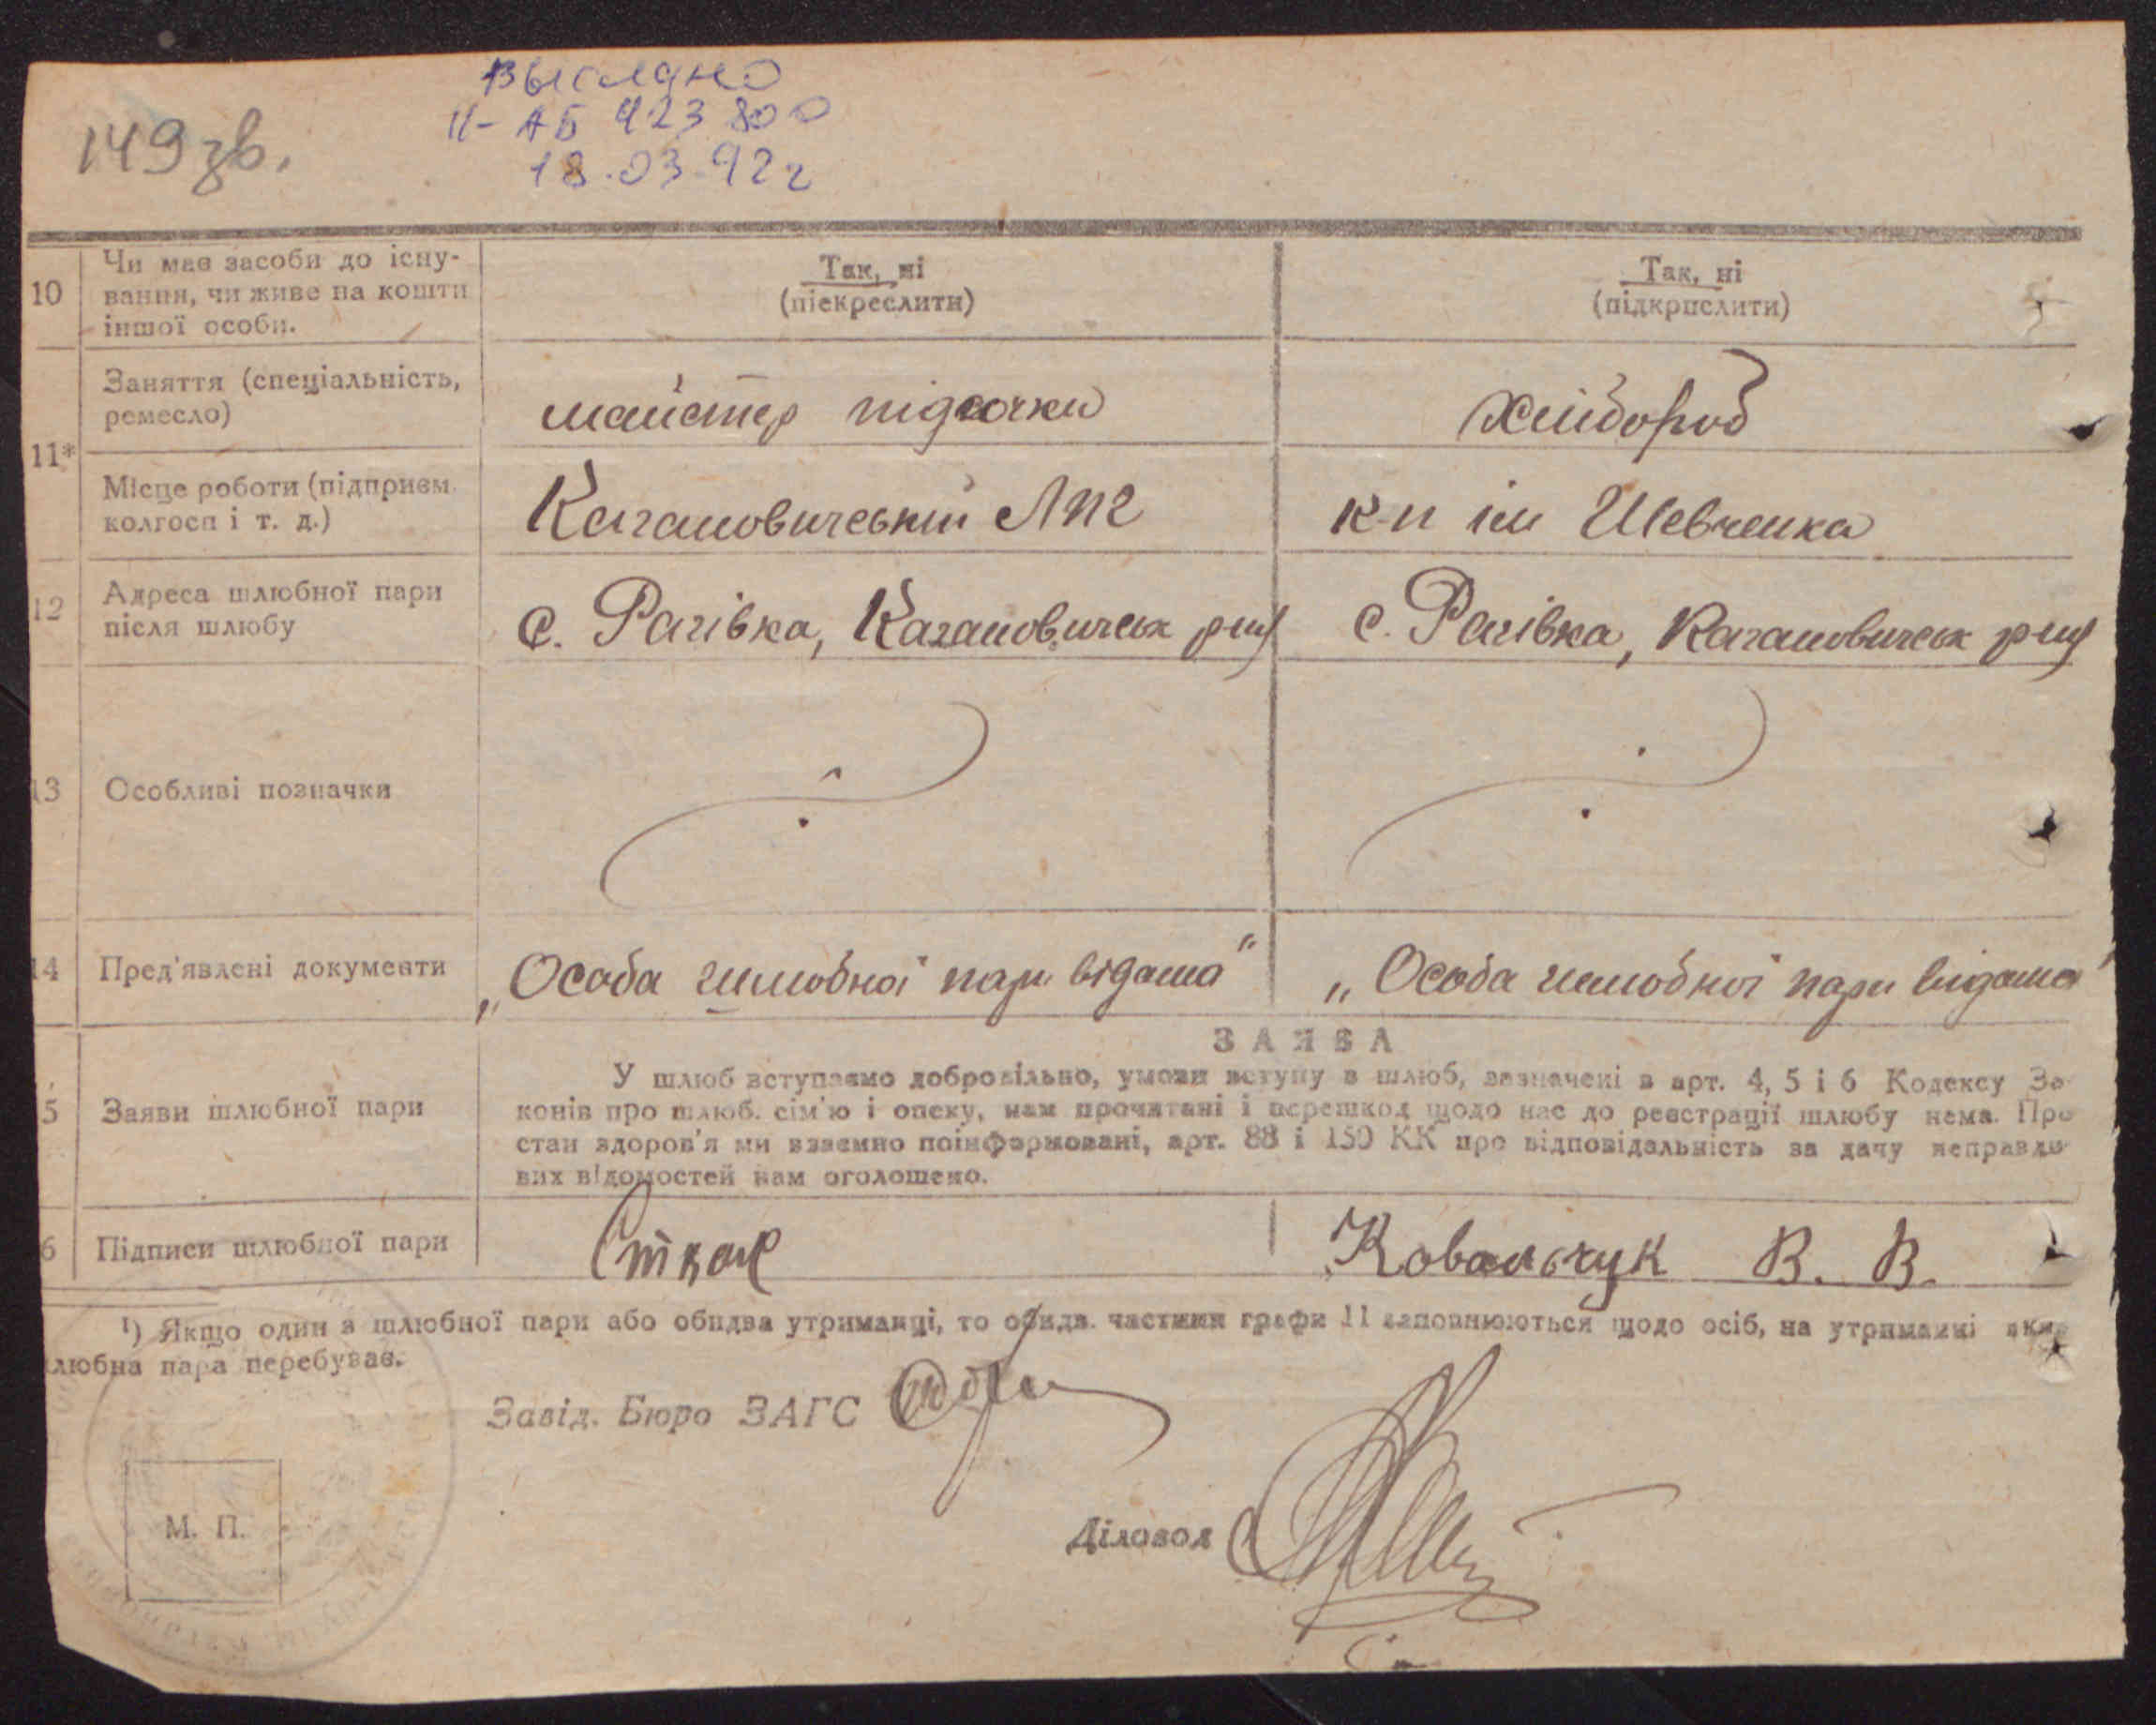 149 зв.
Выслано
II-АБ 423800
18.03.92 г
10
Чи має засоби до існу-
вання, чи живе на кошти
іншої особи.
Так, ні
(піекреслити)
Так, ні
(підкрпслити)
11*
Заняття (спеціальність,
ремесло)
майстер підсочки
хлібороб
Місце роботи (підприєм.
колгосп і т. д.)
Кагановичський ЛПГ
к-п ім Шевченка
12
Адреса шлюбної пари
після шлюбу
с. Рагівка, Кагановичськ р-ну
с. Рагівка, Кагановичськ р-ну
13
Особливі позначки
14
Пред'явлені документи
„Особа шлюбної пари відома"
„Особа шлюбної пари відома"
ЗАЯВА
5
Заяви шлюбної пари
У шлюб вступаємо добровільно, умови вступу в шлюб, зазначені в арт. 4, 5 і 6 Кодексу За
конів про шлюб. сім'ю і опеку, нам прочитані і перешкод щодо нас до реєстрації шлюбу нема. Про
стан здоров'я ми взаємно поінформовані, арт. 88 і 150 КК про відповідальність за дачу неправди-
вих відомостей нам оголошено.
6
Підписи шлюбної пари
Ковальчук В. В.
¹) Якщо один з шлюбної пари або обидва утриманці, то обидв. частини графи 11 заповнюються щодо осіб, на утриманні яких
любна пара перебуває.
Завід. Бюро ЗАГС
М. П.
Діловод